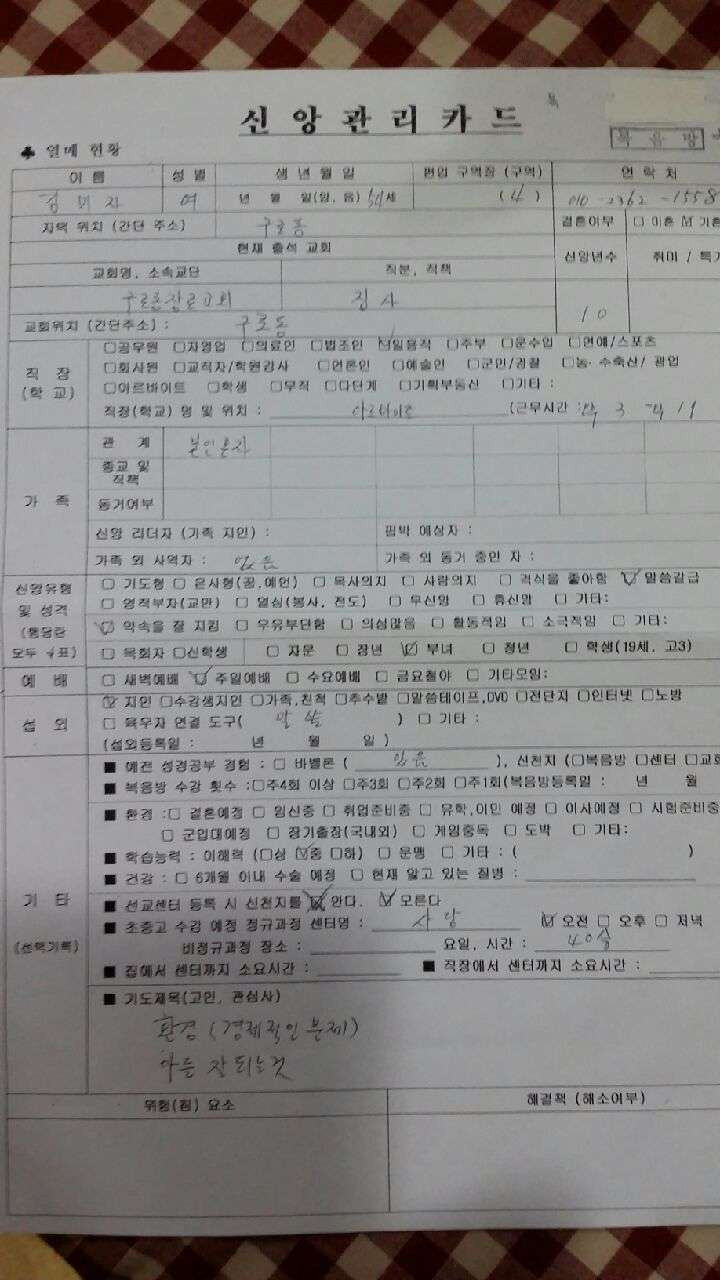 신 앙 관 리 카 드
복 음 방
♣ 열매 현황
이 름 성 별 생 년 월 일 편입 구역장 (구역) 연 락 처
여 년 월 일(양, 음) 세 (4) 010-2362-1558
지역 위치 (간단 주소) 구로동 결혼여부 □ 미혼 ☑ 기혼
현재 출석 교회 신앙년수 취미 / 특기
교회명, 소속교단 직분, 직책
집사 10
교회위치 (간단주소) : 구로동
직 장 (학 교)
□공무원 □자영업 □의료인 □법조인 ☑일용직 □주부 □문수입 □연예/스포츠
□회사원 □교직자/학원강사 □언론인 □예술인 □군인/경찰 □농·수축산/ 광업
□아르바이트 □학생 □무직 □다단계 □기획부동산 □기타 :
직장(학교) 명 및 위치 : (근무시간 :
가 족
관 계 본인혼자
종교 및 직책
동거여부
신앙 리더자 (가족 지인) : 핍박 예상자 :
가족 외 사역자 : 없음 가족 외 동거 중인 자 :
신앙유형 및 성격 (해당란 모두 √표)
□ 기도형 □ 은사형(꿈,예언) □ 목사의지 □ 사람의지 □ 격식을 좋아함 ☑ 말씀갈급
□ 영적부자(교만) □ 열심(봉사, 전도) □ 무신앙 □ 휴신앙 □ 기타:
☑ 약속을 잘 지킴 □ 우유부단함 □ 의심많음 □ 활동적임 □ 소극적임 □ 기타:
□ 목회자 □신학생 □ 자문 □ 장년 ☑ 부녀 □ 청년 □ 학생(19세, 고3)
예 배 □ 새벽예배 ☑ 주일예배 □ 수요예배 □ 금요철야 □ 기타모임:
섭 외
☑ 지인 □수강생지인 □가족,친척 □추수밭 □말씀테이프,DVD □전단지 □인터넷 □노방
□ 육우자 연결 도구( 말씀 ) □ 기타 :
(섭외등록일 : 년 월 일 )
기 타 (선택기록)
■ 예전 성경공부 경험 : □ 바벨론 ( 없음 ), 신천지 (□복음방 □센터 □교회
■ 복음방 수강 횟수 :□주4회 이상 □주3회 □주2회 □주1회(복음방등록일 : 년 월
■ 환경 :□ 결혼예정 □ 임신중 □ 취업준비중 □ 유학,이민 예정 □ 이사예정 □ 시험준비중
□ 군입대예정 □ 장기출장(국내외) □ 게임중독 □ 도박 □ 기타:
■ 학습능력 : 이해력 (□상 ☑중 □하) □ 문맹 □ 기타 : ( )
■ 건강 : □ 6개월 이내 수술 예정 □ 현재 앓고 있는 질병 :
■ 선교센터 등록 시 신천지를 ☑ 안다. ☑ 모른다
■ 초중고 수강 예정 정규과정 센터명 : 사랑 ☑ 오전 □ 오후 □ 저녁
비정규과정 장소 : 요일, 시간 :
■ 집에서 센터까지 소요시간 : ■ 직장에서 센터까지 소요시간 :
■ 기도제목(고민, 관심사)
환경 (경제적인 문제)
아들 잘되는것
위험(핍) 요소 해결책 (해소여부)